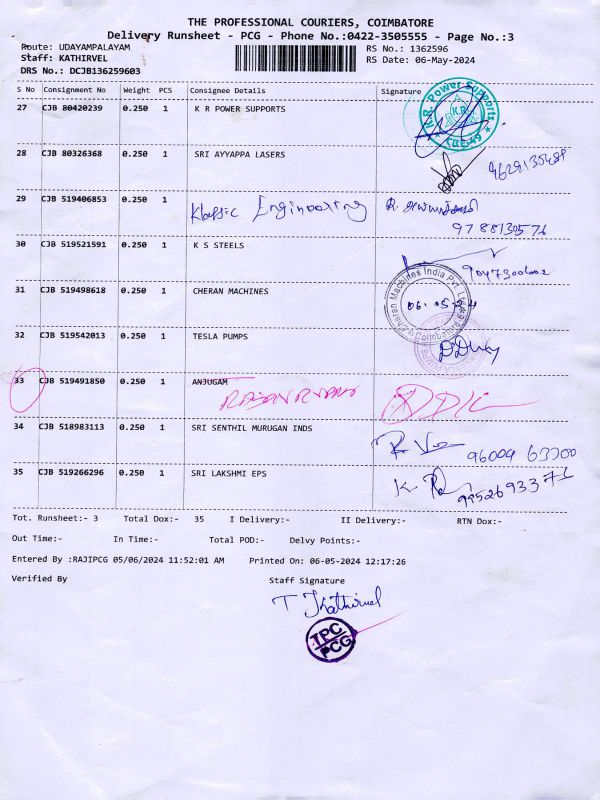 THE PROFESSIONAL COURIERS, COIMBATORE
Delivery Runsheet - PCG - Phone No.:0422-3505555 - Page No.:3
Route: UDAYAMPALAYAM
Staff: KATHIRVEL
DRS No.: DCJB136259603
RS No.: 1362596
RS Date: 06-May-2024
S No Consignment No Weight PCS Consignee Details Signature
27 CJB 80420239 0.250 1 K R POWER SUPPORTS
K.R. Power Supports
K.R
CBE-49
28 CJB 80326368 0.250 1 SRI AYYAPPA LASERS
29 CJB 519406853 0.250 1 Klassic Engineering
9788130576
30 CJB 519521591 0.250 1 K S STEELS
9047300602
31 CJB 519498618 0.250 1 CHERAN MACHINES
Cheran Machines India Pvt. Ltd
Coimbatore
06.05.24
32 CJB 519542013 0.250 1 TESLA PUMPS
33 CJB 519491850 0.250 1 ANJUGAM
34 CJB 518983113 0.250 1 SRI SENTHIL MURUGAN INDS
96009 63300
35 CJB 519266296 0.250 1 SRI LAKSHMI EPS
9952693371
Tot. Runsheet:- 3 Total Dox:- 35 I Delivery:- II Delivery:- RTN Dox:-
Out Time:- In Time:- Total POD:- Delvy Points:-
Entered By :RAJIPCG 05/06/2024 11:52:01 AM Printed On: 06-05-2024 12:17:26
Verified By Staff Signature
T Kathirvel
TPC
PCG